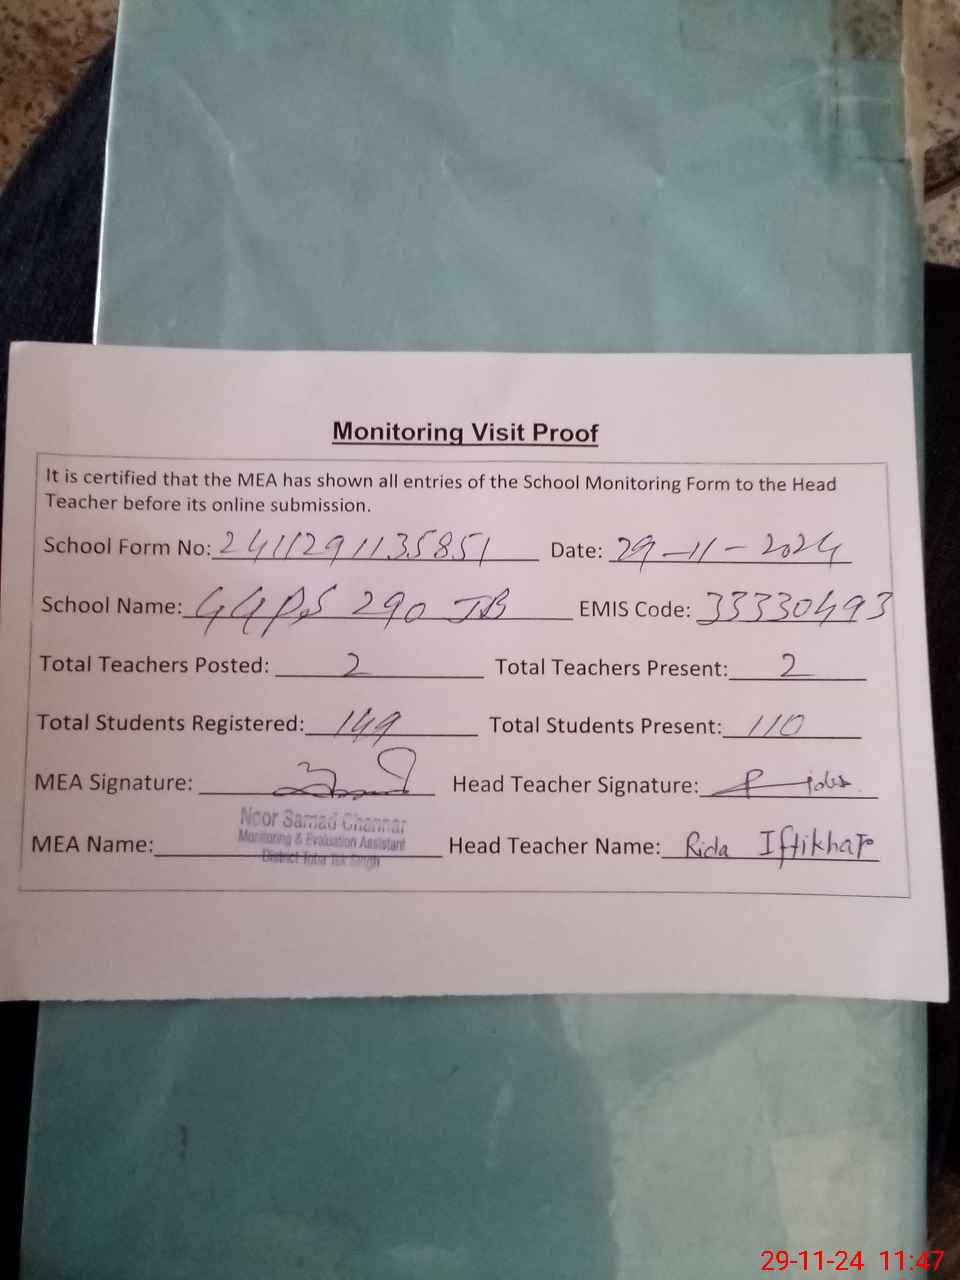 Monitoring Visit Proof
It is certified that the MEA has shown all entries of the School Monitoring Form to the Head
Teacher before its online submission.
School Form No: 2411291135851 Date: 29-11-2024
School Name: GGPS 290 JB EMIS Code: 33330493
Total Teachers Posted: 2 Total Teachers Present: 2
Total Students Registered: 149 Total Students Present: 110
MEA Signature: Head Teacher Signature: Rida
Noor Samad Channar
Monitoring & Evaluation Assistant
MEA Name: Head Teacher Name: Rida Iftikhar
District Toba Tek Singh
29-11-24 11:47